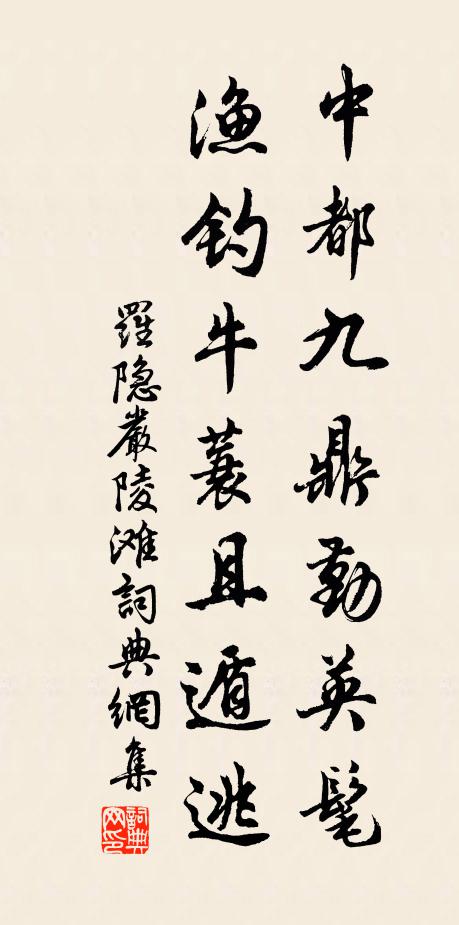 中都九鼎勤英髦
渔钓牛蓑且遁逃
羅隐嚴陵滩詞典網集
詞典
网印